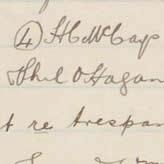 ④ H C McCay
Phil O Hagan
t re trespas